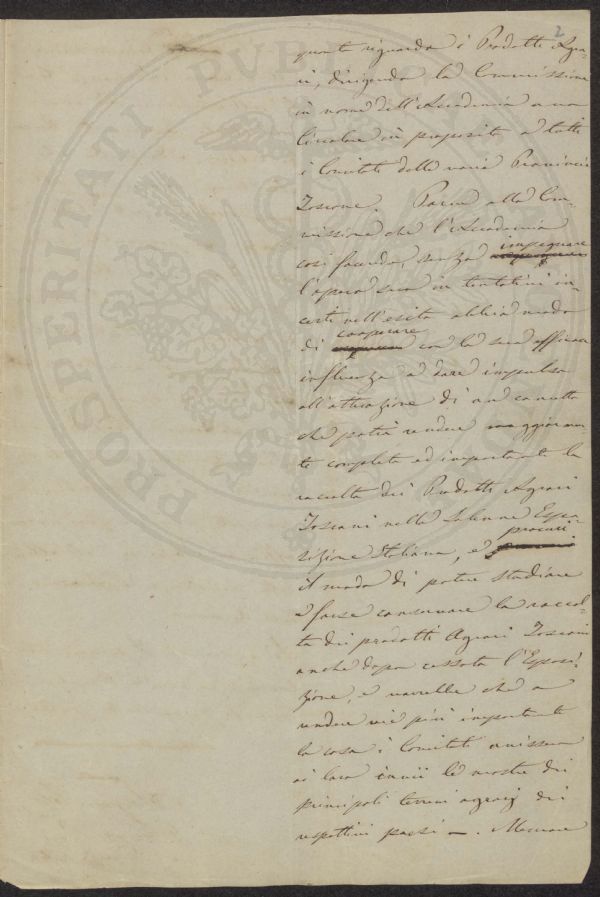 2
quanto riguarda i Prodotti Agra-
ri, dirigendo la Commissione
in nome dell'Accademia una
Circolare in proposito a tutti
i Comitati delle varie Provincie
Toscane. Parve alla Com-
missione che l'Accademia
così facendo, senza impegnare
l'opera sua in tentativi in-
certi nell'esito abbia modo
di cooperare con la sua efficace
influenza a dare impulso
all'attuazione di un concetto
che potrà rendere maggiormen-
te completa ed importante la
raccolta dei Prodotti Agrari
Toscani nella Solenne Espo-
sizione Italiana, e procuri
il modo di potere studiare
e forse conservare la raccol-
ta dei prodotti Agrari Toscani
anche dopo cessata l'Esposi-
zione, e vorrebbe che a
rendere vie più importante
la cosa i Comitati unissero
ai loro invii le mostre dei
principali terreni agrarj dei
respettivi paesi —.
PROSPERITATI PVBLICAE